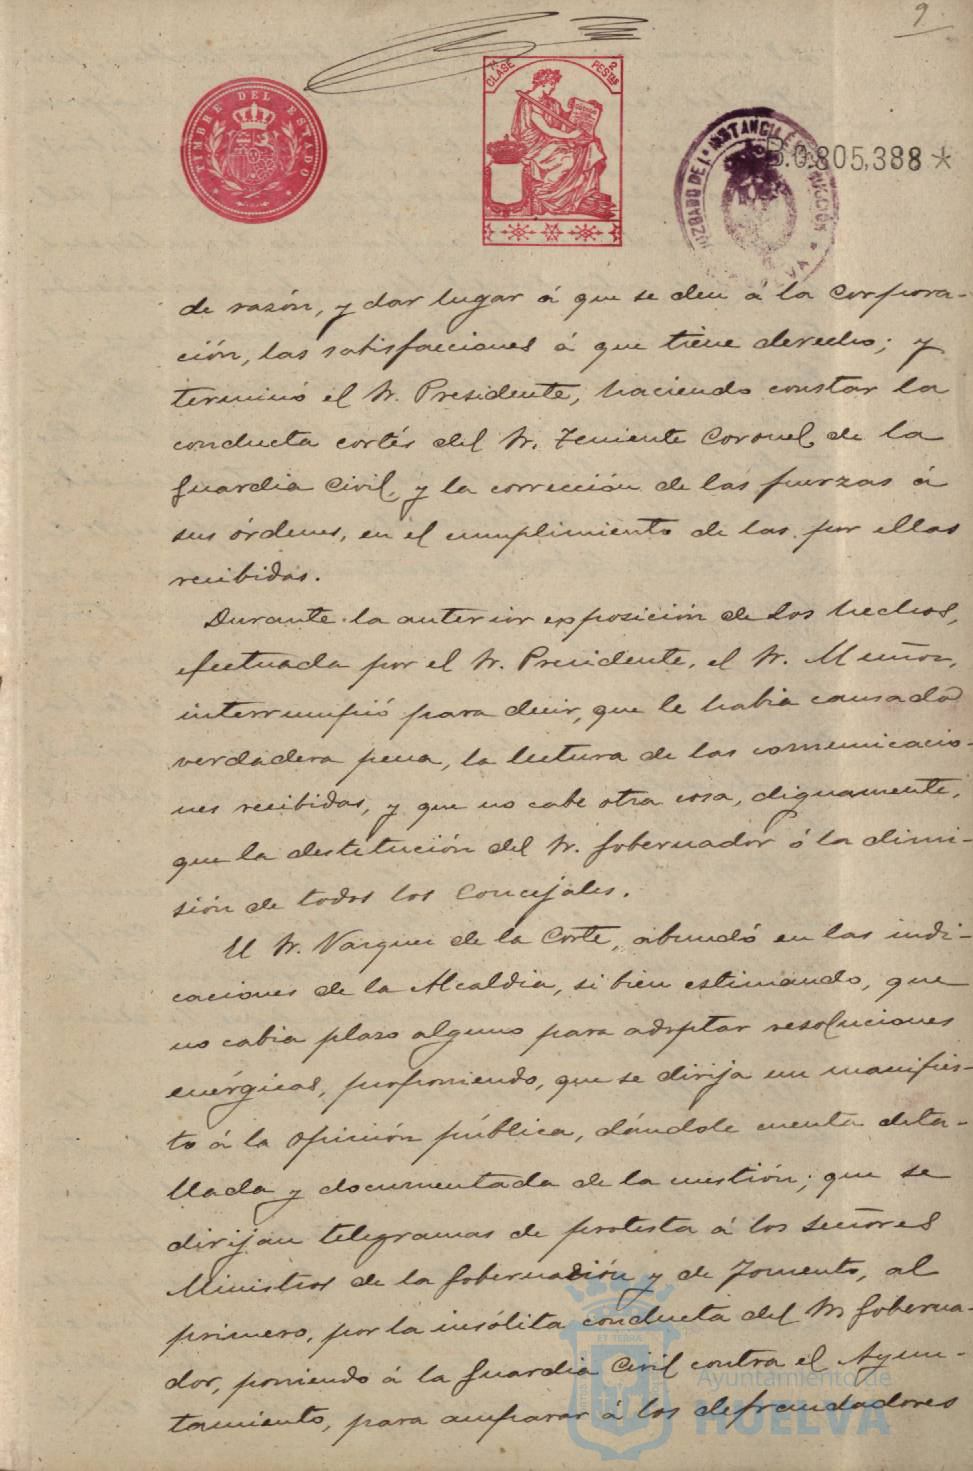 9
TIMBRE DEL ESTADO
7ª CLASE 2 PESTAS
JUZGADO DE 1ª INSTANCIA É INSTRUCCIÓN
B.0.805,388 *
de razón, y dar lugar á que se den á la Corpora-
ción, las satisfacciones á que tiene derecho; y
terminó el Sr. Presidente, haciendo constar la
conducta cortés del Sr. Teniente Coronel de la
Guardia Civil, y la corrección de las fuerzas á
sus órdenes, en el cumplimiento de las por ellas
recibidas.
Durante la anterior exposición de los hechos,
efectuada por el Sr. Presidente, el Sr. Muñoz,
interrumpió para decir, que le habia causado
verdadera pena, la lectura de las comunicacio-
nes recibidas, y que no cabe otra cosa, dignamente,
que la destitución del Sr. Gobernador ó la dimi-
sión de todos los Concejales.
El Sr. Vazquez de la Corte, abundó en las indi-
caciones de la Alcaldia, si bien estimando, que
no cabia plazo alguno para adoptar resoluciones
enérgicas, proponiendo, que se dirija un manifies-
to á la opinión pública, dándole cuenta deta-
llada y documentada de la cuestión; que se
dirijan telegramas de protesta á los señores
Ministros de la Gobernación y de Fomento, al
primero, por la insólita conducta del Sr Goberna-
dor, poniendo á la Guardia Civil contra el Ayun-
tamiento, para amparar á los defraudadores
Ayuntamiento de
HUELVA